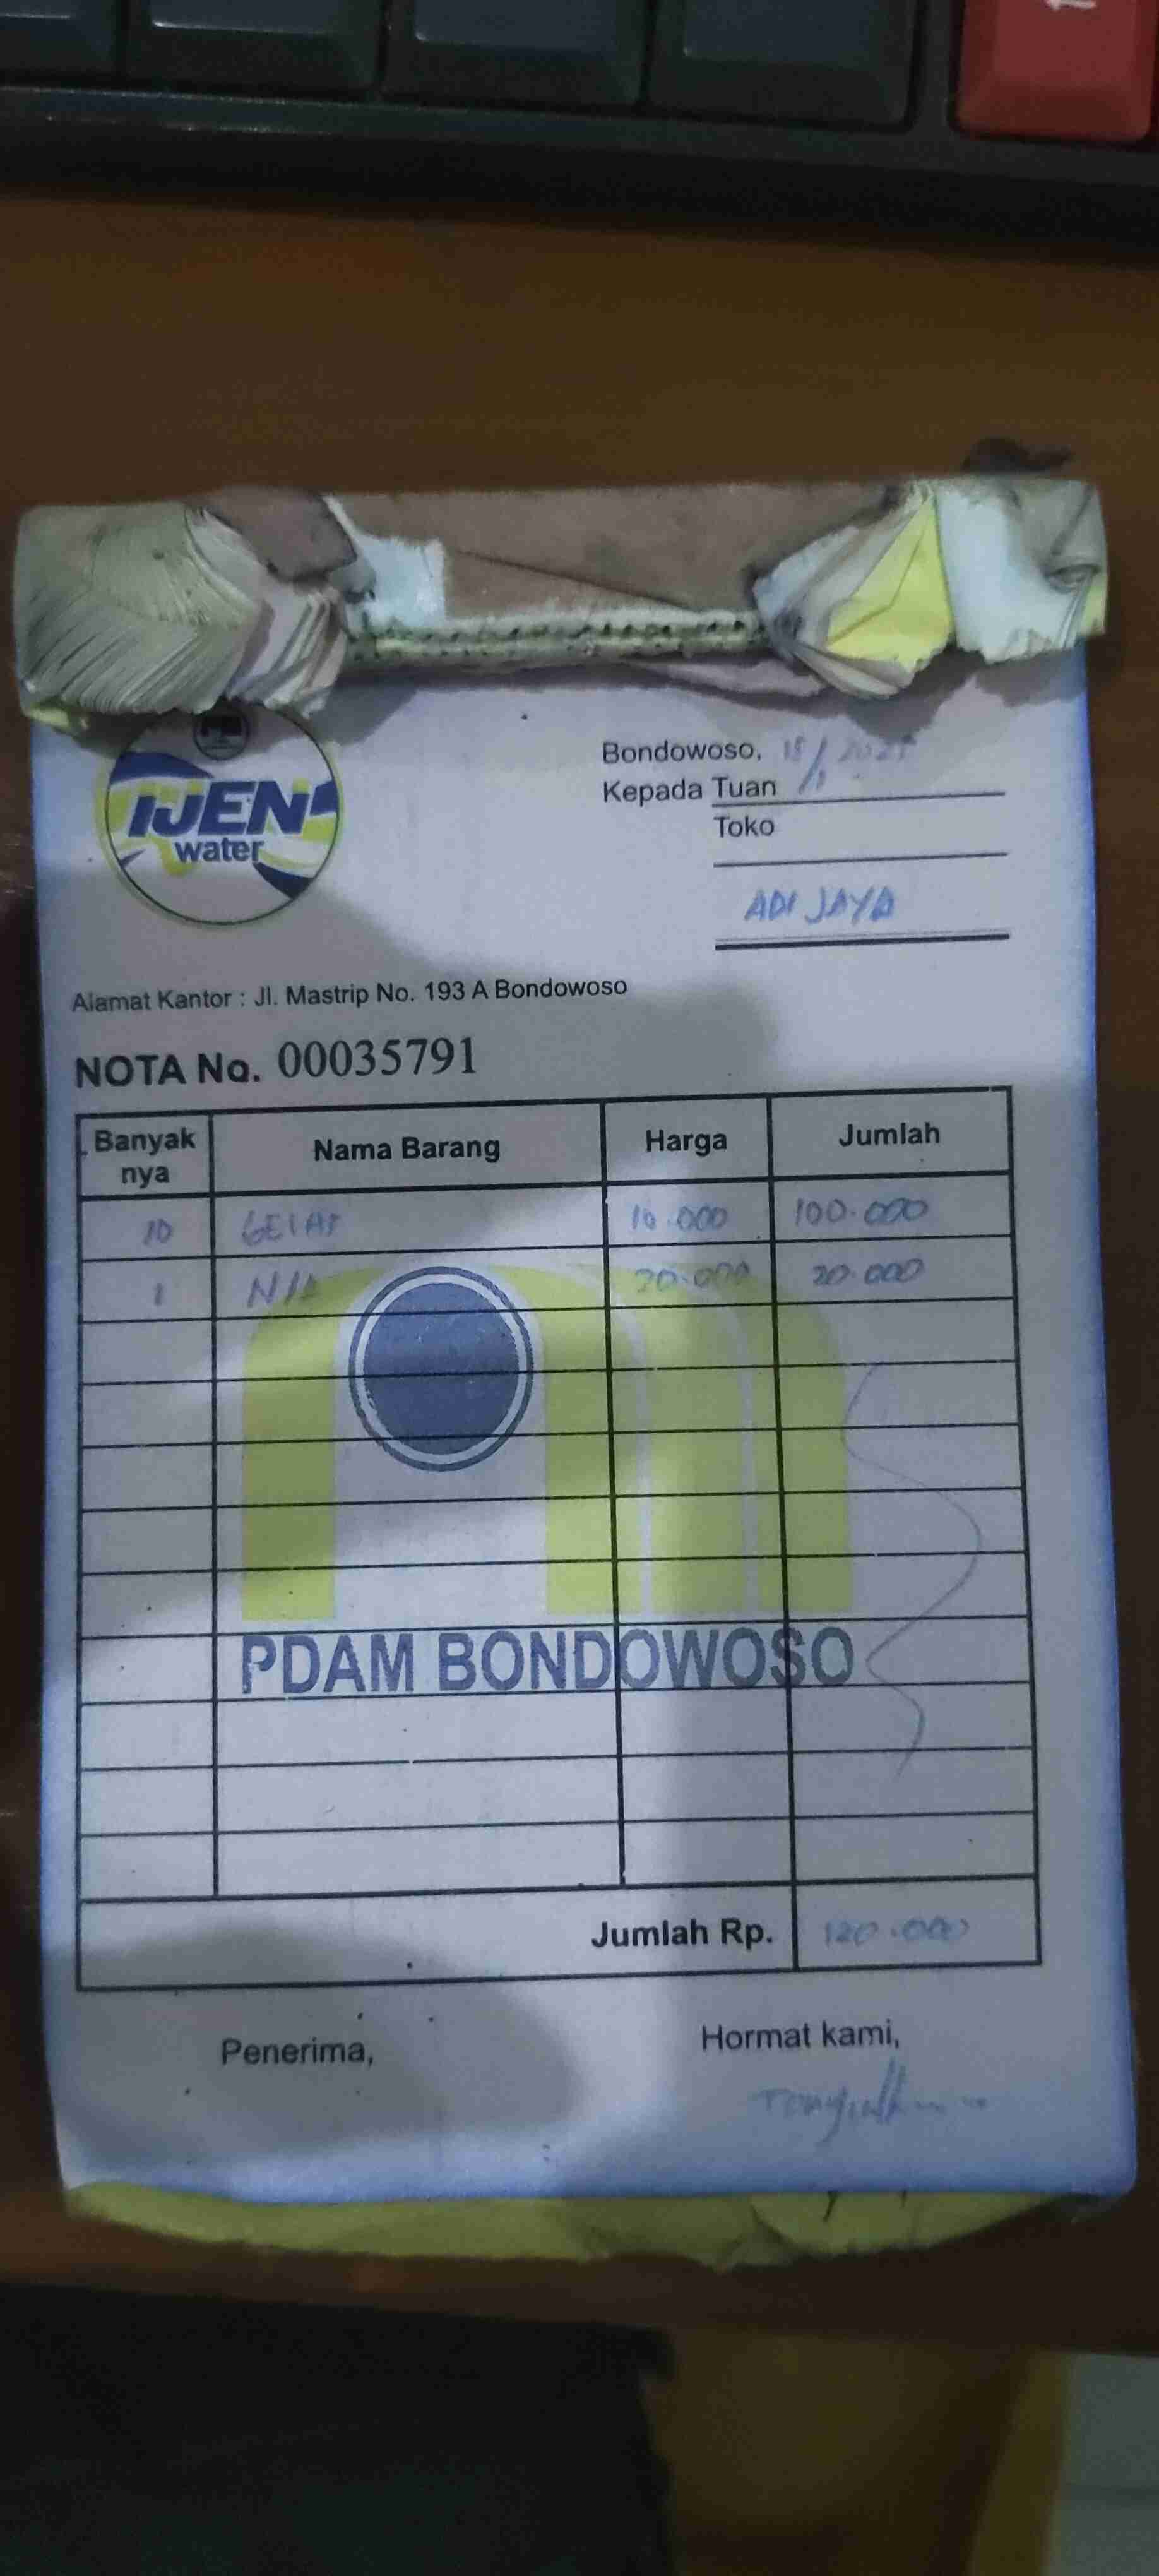 IJEN
water
Bondowoso, 15/1 2025
Kepada Tuan
Toko
ADI JAYA
Alamat Kantor : Jl. Mastrip No. 193 A Bondowoso
NOTA No. 00035791
Banyak nya Nama Barang Harga Jumlah
10 GELAS 10.000 100.000
1 20.000 20.000
PDAM BONDOWOSO
Jumlah Rp. 120.000
Penerima, Hormat kami,